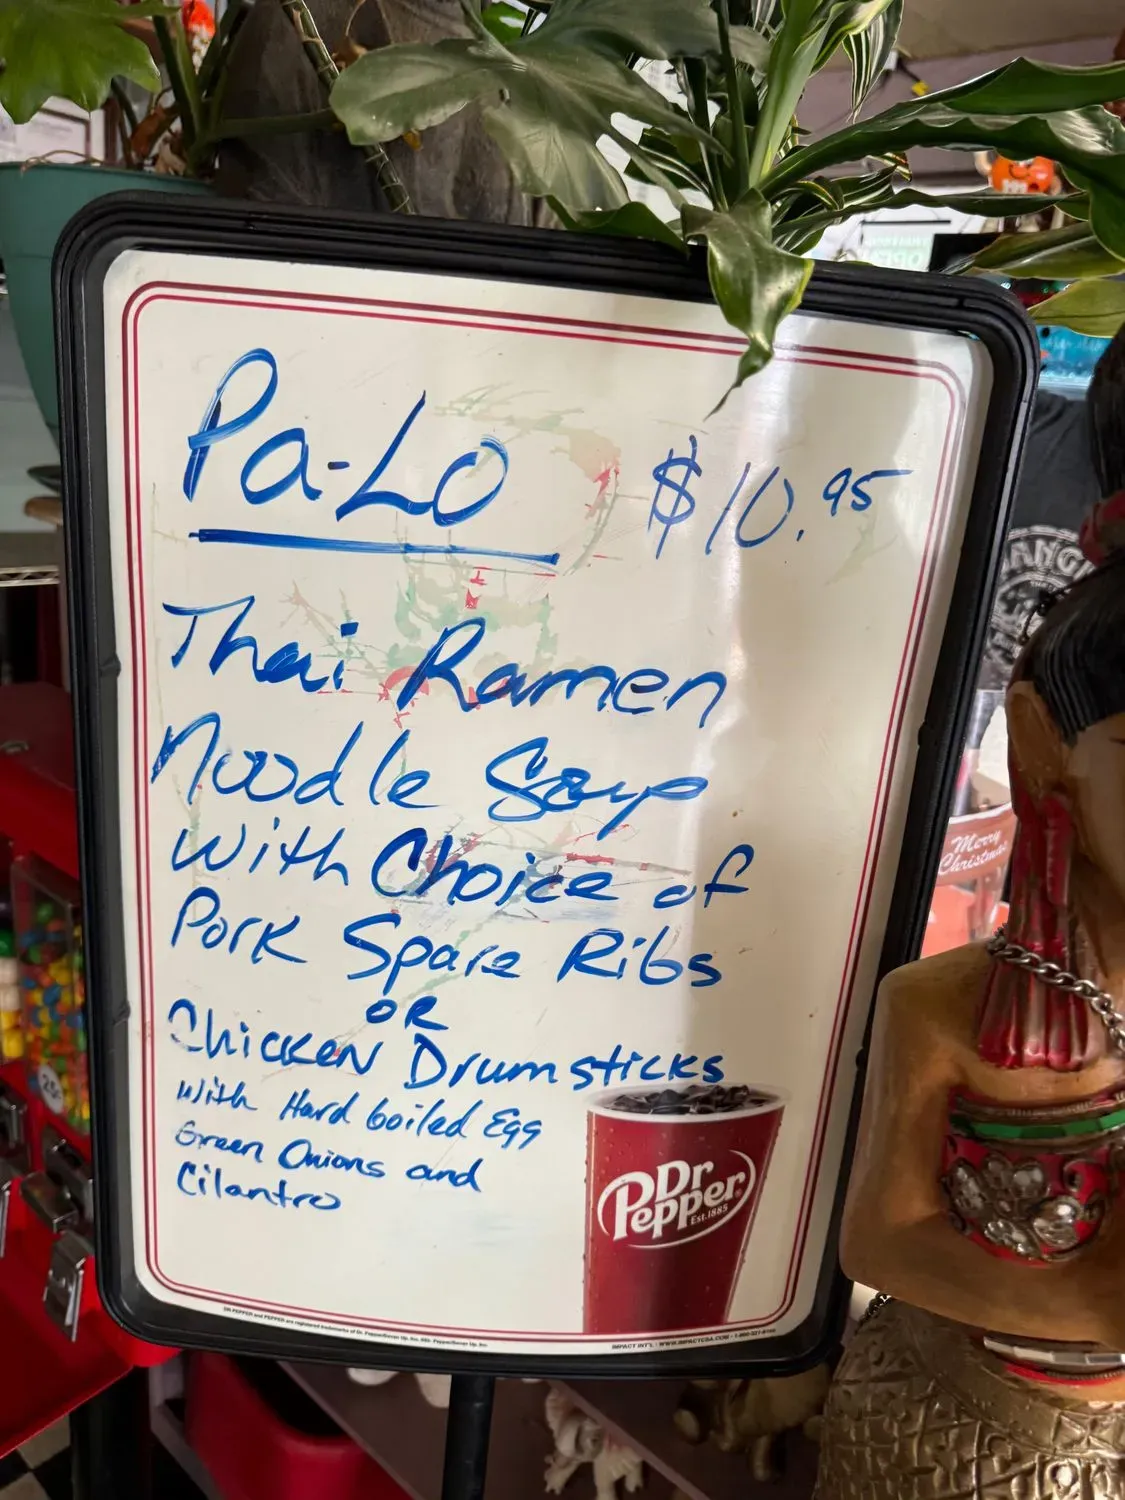 Pa-Lo $10.95
Thai Ramen
Noodle Soup
with Choice of
Pork Spare Ribs
OR
Chicken Drumsticks
with Hard boiled Egg
Green Onions and
Cilantro
Dr
Pepper
Est.1885
Merry
Christmas
25¢